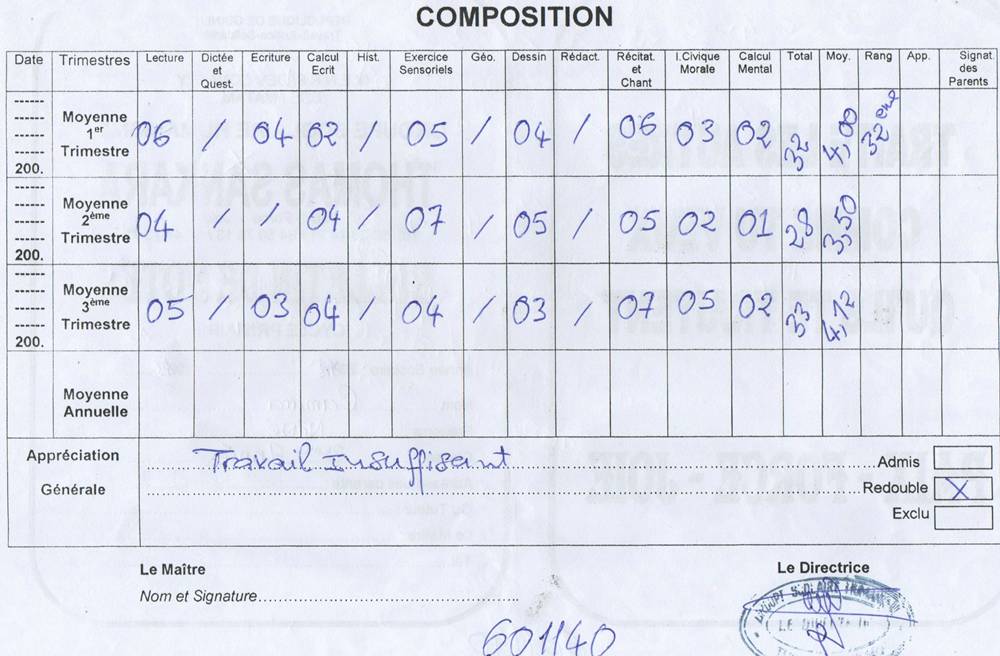 COMPOSITION
Date Trimestres Lecture Dictée et Quest. Ecriture Calcul Ecrit Hist. Exercice Sensoriels Géo. Dessin Rédact. Récitat. et Chant I.Civique Morale Calcul Mental Total Moy. Rang App. Signat. des Parents
Moyenne 1er Trimestre 200. 06 / 04 02 / 05 / 04 / 06 03 02 32 4,00 32ème
Moyenne 2ème Trimestre 200. 04 / / 04 / 07 / 05 / 05 02 01 28 3,50
Moyenne 3ème Trimestre 200. 05 / 03 04 / 04 / 03 / 07 05 02 33 4,12
Moyenne Annuelle
Appréciation Générale Travail Insuffisant
Admis
Redouble X
Exclu
Le Maître Le Directrice
Nom et Signature
601140